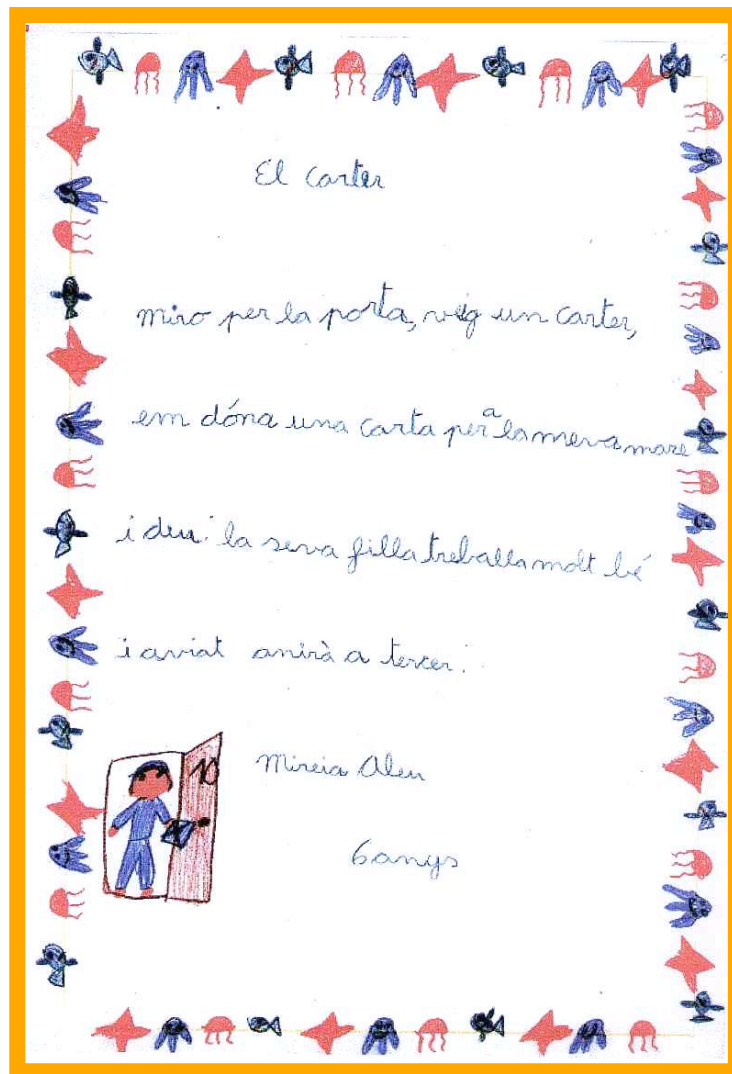 El carter
miro per la porta, veig un carter,
em dóna una carta per a la meva mare
i diu: la seva filla treballa molt bé
i aviat anirà a tercer.
10
Mireia Aleu
6 anys